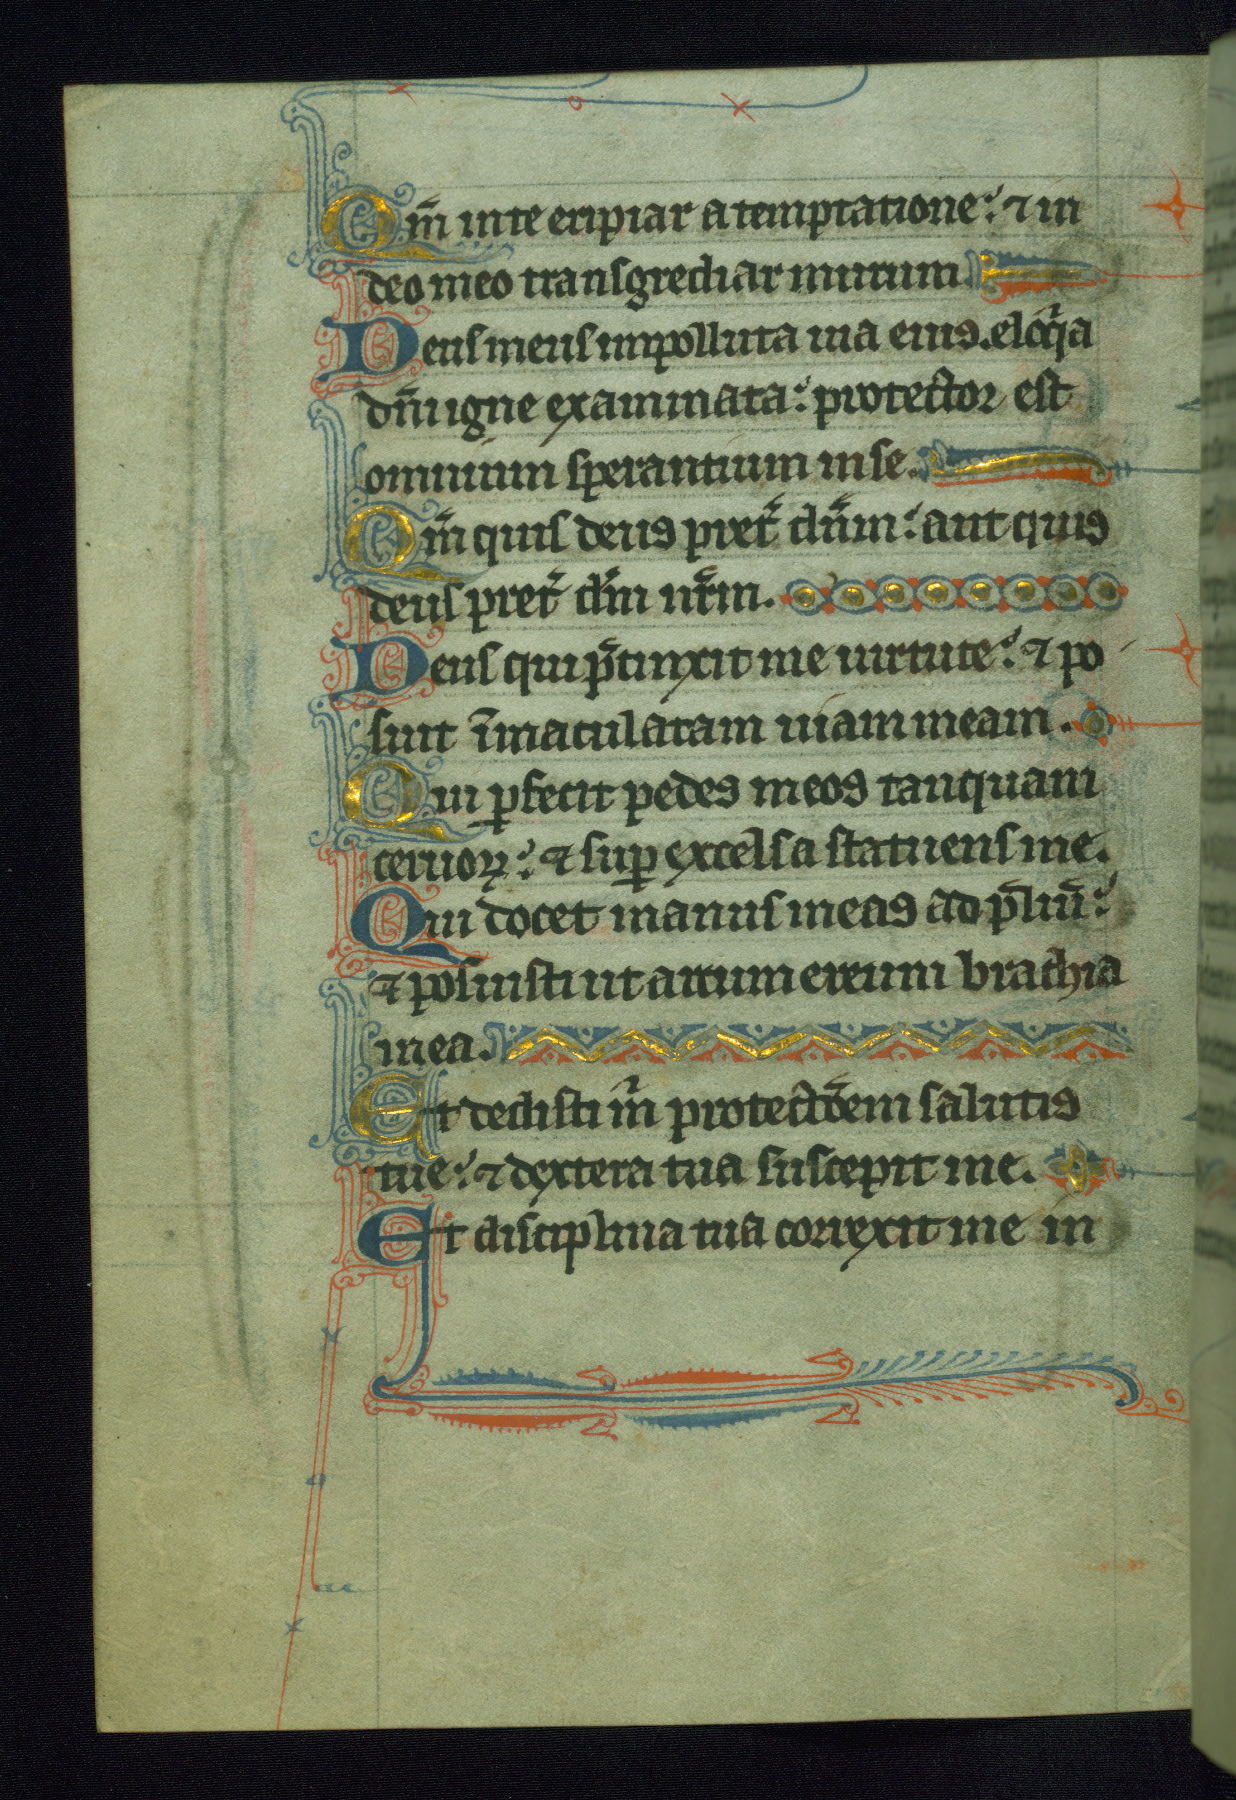 Qm̄ in te eripiar a temptatione: ⁊ in
deo meo transgrediar murum
Deus meus impolluta uia eius. eloq̓a
dn̄i igne examinata: protector est
omnium sperantium in se.
Qm̄ quis deus pret̓ dn̄m: aut quis
deus pret̓ dm̄ nr̄m.
Deus qui p̄cinxit me uirtute: ⁊ po
suit īmaculatam uiam meam.
Qui ꝑfecit pedes meos tanquam
ceruoꝝ: ⁊ suꝑ excelsa statuens me.
Qui docet manus meas ad p̄liū:
⁊ posuisti ut arcum ereum brachia
mea.
Et dedisti m̓ protectōem salutis
tue: ⁊ dextera tua suscepit me.
Et disciplina tua correxit me in